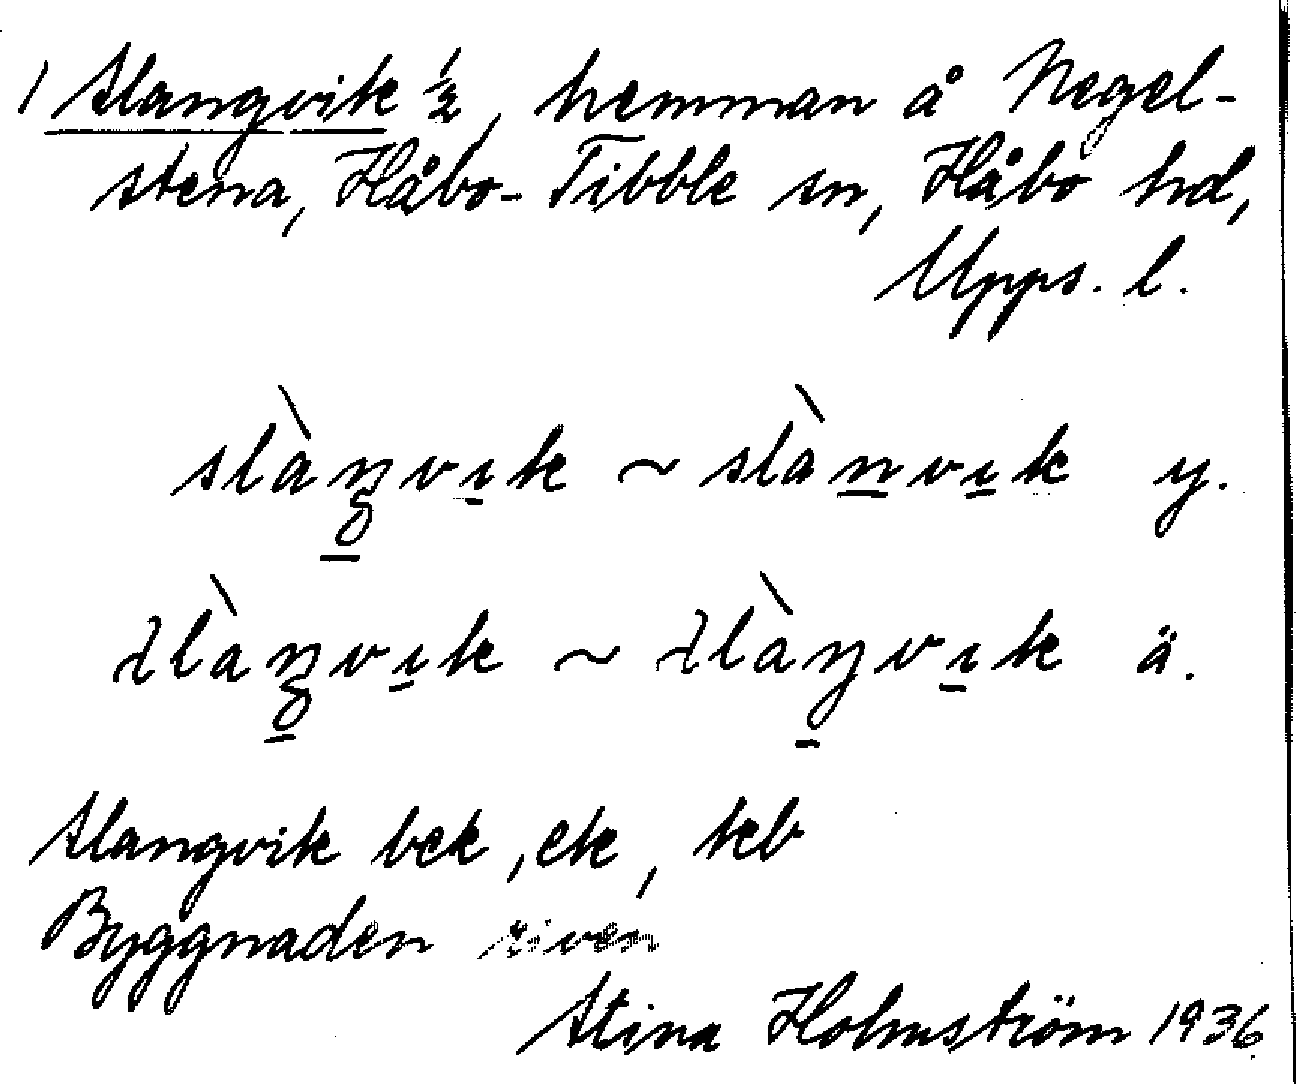 1 Slangvik ½, hemman å Negel-
stena, Håbo-Tibble sn, Håbo hd,
Upps. l.
slàŋvɪk ~ slànvɪk y.
ꞎlàŋvɪk ~ ꞎlàŋvɪk ä.
Slangvik bek, ek, keb
Byggnaden riven
Stina Holmström 1936